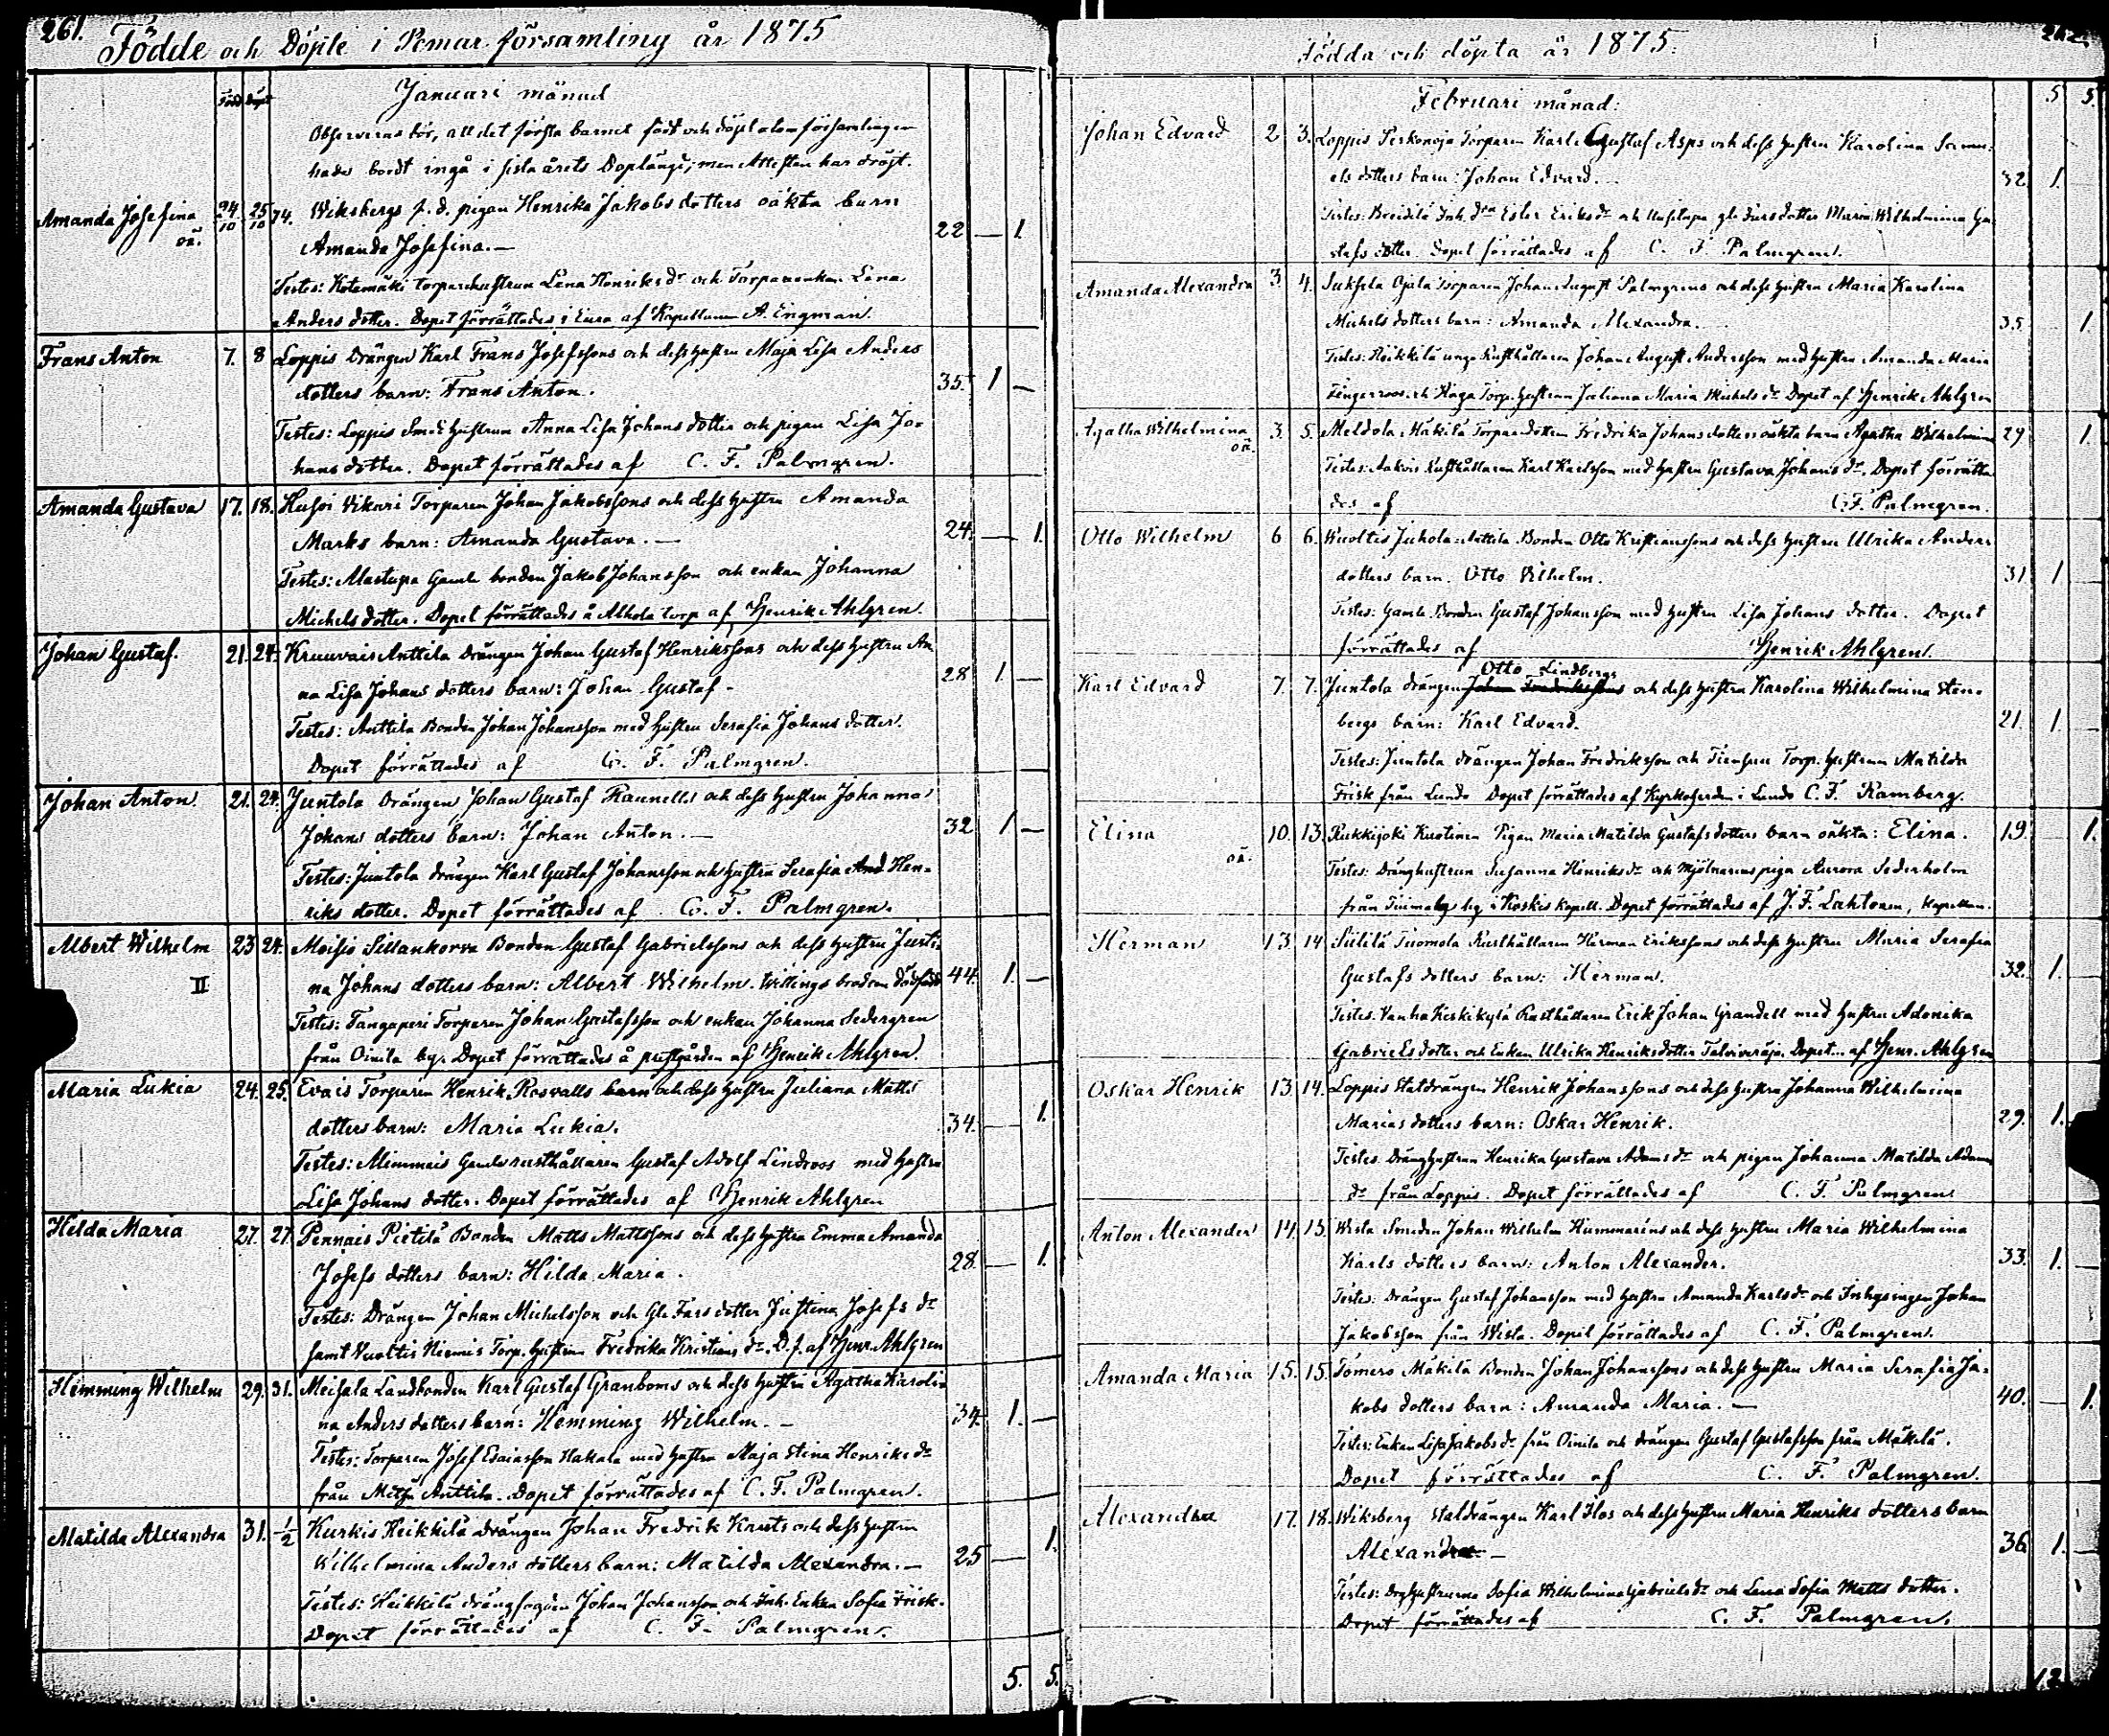 261.
Födde och Döpte i Pemar församling år 1875
Född Döpt
Januari månad
Observeras bör, att det första barnet födt och döpt utom församlingen
hade bordt ingå i sista årets Doplängd; men Attesten har dröjt.
Amanda Josefina oä. 24/10 25/10 74. Wiksbergs f. d. pigan Henrika Jakobs dotters oäkta barn
Amanda Josefina. — 22 — 1.
Testes: Kotamäki torparehustrun Lena Henriks dr och Torpareenkan Lena
Anders dotter. Dopet förrättades i Eura af Kapellanen A. Engman.
Frans Anton 7. 8 Loppis Drängen Karl Frans Josefssons och dess hustru Maja Lisa Anders
dotters barn: Frans Anton. 35. 1 —
Testes: Loppis Smeds hustrun Anna Lisa Johans dotter och pigan Lisa Jo-
hans dotter. Dopet förrättades af C. F. Palmgren.
Amanda Gustava 17. 18. Husoi Vikari Torparen Johan Jakobssons och dess hustru Amanda
Marks barn: Amanda Gustava. — 24. — 1.
Testes: Mastupa Gamle bonden Jakob Johansson och enkan Johanna
Michels dotter. Dopet förrättades å Alhola torp af Henrik Ahlgren.
Johan Gustaf. 21. 24. Kruuvais Anttila Drängen Johan Gustaf Henrikssons och dess hustru An
na Lisa Johans dotters barn: Johan Gustaf - 28 1. —
Testes: Anttila Bonden Johan Johansson med hustru Serafia Johans dotter.
Dopet förrättades af C. F. Palmgren.
Johan Anton 21. 24. Juntola Drängen Johan Gustaf Rannells och dess hustru Johanna
Johans dotters barn: Johan Anton. — 32 1 —
Testes: Juntola drängen Karl Gustaf Johansson och hustru Serafia And Hen-
riks dotter. Dopet förrättades af C. F. Palmgren.
Albert Wilhelm II 23 24. Moisio Sillankorva Bonden Gustaf Gabrielssons och dess hustru Justi-
na Johans dotters barn: Albert Wilhelm. Tvillings brodren dödfödd 44. 1. —
Testes: Tangaperi Torparen Johan Gustafsson och enkan Johanna Sedergren
från Oinila by. Dopet förrättades å prestgården af Henrik Ahlgren.
Maria Lukia 24. 25. Evais Torparen Henrik Rosvalls barn och dess hustru Juliana Matts
dotters barn: Maria Lukia. 34. — 1.
Testes: Mimmais Gamle rusthållaren Gustaf Adolf Lindroos med hustru
Lisa Johans dotter. Dopet förrättades af Henrik Ahlgren
Hilda Maria 27. 27 Pennais Pietilä Bonden Matts Mattssons och dess hustru Emma Amanda
Josefs dotters barn: Hilda Maria. 28. — 1.
Testes: Drängen Johan Michelsson och Gl. Fars dotter Justina Josefs dr
samt Vuoltis Niemis Torp. hustrun Fredrika Kristians dr. D. f. af Henr. Ahlgren
Hemming Wilhelm 29. 31. Meisala Landbonden Karl Gustaf Granboms och dess hustru Agatha Karoli-
na Anders dotters barn: Hemming Wilhelm. - 34. 1. —
Testes: Torparen Josef Esaiasson Hakala med hustru Maja Stina Henriks dr
från Anttila. Dopet förrättades af C. F. Palmgren.
Matilda Alexandra 31. 1/2 Kurkis Heikkilä drängen Johan Fredrik Knuts och dess hustru
Wilhelmina Anders dotters barn: Matilda Alexandra. — 25 — 1.
Testes: Heikkilä drängfogden Johan Johansson och Inh. Enkan Sofia Frisk.
Dopet förrättades af C. F. Palmgren.
5. 5.
262.
Födda och döpta år 1875.
Februari månad: 5 5.
Johan Edvard 2 3. Loppis Torparen Karl Gustaf Asps och dess hustru Karolina Samu-
els dotters barn: Johan Edvard. — 32. 1.
Testes: Inh. Ester Eriks dr och gl. Fars dotter Maria Wilhelmina Gu
stafs dotter. Dopet förrättades af C. F. Palmgren.
Amanda Alexandra 3 4. Suksela Ojala Torparen Johan August Palmgrens och dess hustru Maria Karolina
Michels dotters barn: Amanda Alexandra. 35 1.
Testes: Heikkilä unge Rusthållaren Johan August Andersson med hustru Amanda Maria
och Haga Torp. hustrun Juliana Maria Michels dr Dopet af Henrik Ahlgren
Agatha Wilhelmina oä. 3. 5. Meldola Mäkilä Torparedottern Fredrika Johans dotters oäkta barn Agatha Wilhelmina 29 1.
Testes: Rusthållaren Karl Karlsson med hustru Gustava Johans dr. Dopet förrätta
des af C. F. Palmgren.
Otto Wilhelm 6 6. Wuoltis Juhola-Anttila Bonden Otto Kristianssons och dess hustru Ulrika Anders
dotters barn. Otto Wilhelm. 31 1
Testes: Gamle Bonden Gustaf Johansson med hustru Lisa Johans dotter. Dopet
förrättades af Henrik Ahlgren.
Otto Lindbergs
Karl Edvard 7. 7. Juntola drängen Johan Fredrikssons och dess hustru Karolina Wilhelmina Sten-
bergs barn: Karl Edvard. 21. 1.
Testes: Juntola drängen Johan Fredriksson och Torp. hustrun Matilda
Frisk från Lundo Dopet förrättades af Kyrkoherden i Lundo C. F. Ramberg.
Elina oä. 10. 13. Rukkijoki Kuotinen Pigan Maria Matilda Gustafs dotters barn oäkta: Elina. 19. 1.
Testes: Dränghustrun Susanna Henriks dr och Mjölnarens piga Aurora Sederholm
från by i Koskis kapell. Dopet förrättades af J. F. Lahtonen, Kapellan.
Herman 13 14 Siililä Tuomola Rusthållaren Herman Erikssons och dess hustru Maria Serafia
Gustafs dotters barn: Herman. 32. 1.
Testes. Vanha Keskikylä Rusthållaren Erik Johan Grandell med hustru Adonika
Gabriels dotter och Enkan Ulrika Henriks dotter. Dopet... af Henr. Ahlgren
Oskar Henrik 13. 14. Loppis Statdrängen Henrik Johanssons och dess hustru Johanna Wilhelmina
Marias dotters barn: Oskar Henrik. 29. 1.
Testes. Dränghustrun Henrika Gustava Adams dr och pigan Johanna Matilda Adams
dr från Loppis. Dopet förrättades af C. F. Palmgren
Anton Alexander 14. 15. Wista Smeden Johan Wilhelm Hummarins och dess hustru Maria Wilhelmina
Karls dotters barn: Anton Alexander. 33. 1. —
Testes: Drängen Gustaf Johansson med hustru Amanda Karls dr och Inhysingen Johan
Jakobsson från Wista. Dopet förrättades af C. F. Palmgren.
Amanda Maria 15. 15. Tomero Mäkilä Bonden Johan Johanssons och dess hustru Maria Serafia Ja-
kobs dotters barn: Amanda Maria. — 40. — 1.
Testes: Enkan Lisa Jakobs dr från Oinila och drängen Gustaf Gustafsson från Mäkilä.
Dopet förrättades af C. F. Palmgren.
Alexander 17. 18. Wiksberg Staldrängen Karl Ilos och dess hustru Maria Henriks dotters barn
Alexander — 36. 1.
Testes: Drghustrurna Sofia Wilhelmina Gabriels dr och Lena Sofia Matts dotter.
Dopet förrättades af C. F. Palmgren.
12.